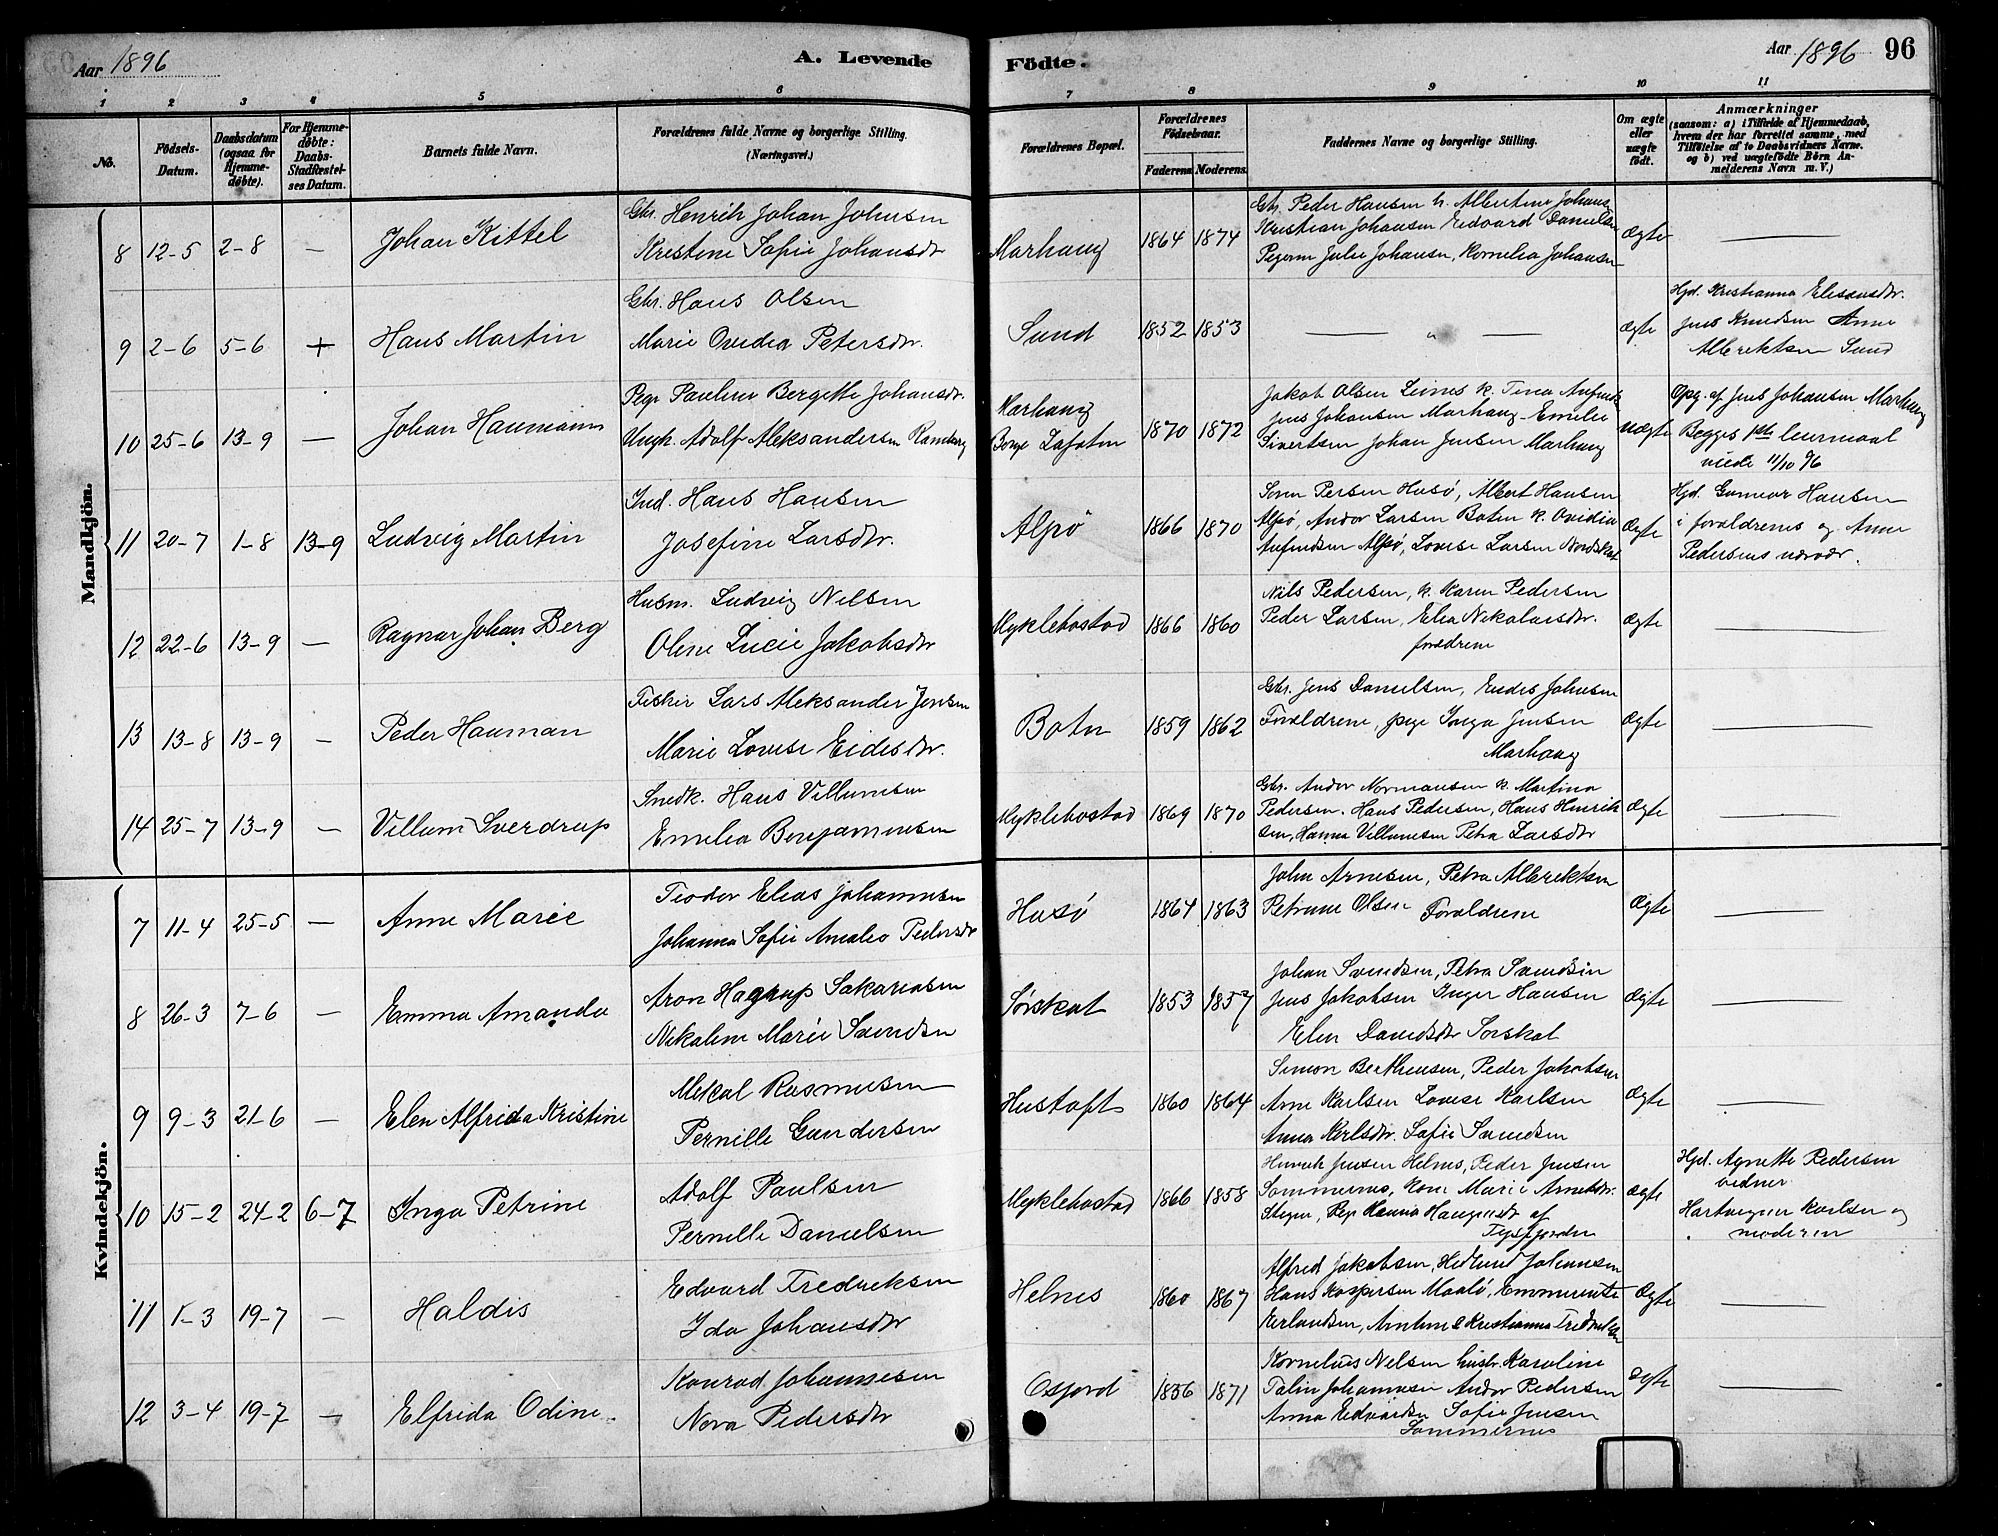 Aar 1896 A. Levende Födte. Aar 1896 96
1 2 3 4 5 6 7 8 9 10 11
No. Födsels-Datum. Daabsdatum (ogsaa for Hjemme-döbte). For Hjemme-döbte: Daabs-Stadfæstel-ses Datum. Barnets fulde Navn. Forældrenes fulde Navne og borgerlige Stilling. (Næringsvei.) Forældrenes Bopæl. Forældrenes Födselsaar. Faderens Moderens Faddernes Navne og borgerlige Stilling. Om ægte eller uægte födt. Anmærkninger (saasom: a) i Tilfælde af Hjemmedaab, hvem der har forrettet samme, med Tilföielse af to Daabsvidners Navne. og b) ved uægtefödte Börn An-melderens Navn m. V.)
Mandkjön.
8 12-5 2-8 — Johan Kittel
Gbr. Henrik Johan Johnsen
Kristine Sofie Johansdr
Marhaug 1864 1874
Gbr. Peder Hansen h. Albertine Johans
Kristian Johansen Edvard Danielsen
Pigerne Julie Johansen, Kornelia Johansen
Ægte —
9 2-6 5-6 + Hans Martin
Gbr. Hans Olsen
Marie Ovidia Petersdr.
Sund 1852 1853
— " —
Ægte
Hjd. Kristianna Eliasdr.
Jens Knudsen Anne
Albriktsen Sund
10 25-6 13-9 — Johan Haumann
Pige Pauline Bergitte Johansdr.
Ungk. Adolf Aleksandersen Ramberg
Marhaug
Borge Lofoten
1870 1872
Jakob Olsen Leines k. Tina
Jens Johansen Marhaug Emelie
Sivertsen Johan Jensen Marhaug
Uægte
Opg. af Jens Johansen Marhaug
Begges 1ste leiermaal
viede 11/10 96
11 20-7 1-8 13-9 Ludvig Martin
Ind. Hans Hansen
Josefine Larsdr.
Alpö 1866 1870
Soren Persen Husö, Albert Hansen
Alpö, Andor Larsen Botn k. Ovidia
Anfindsen Alpö, Lovise Larsen Nordskot
Ægte
Hjd. Gunnar Hansen
i forældrenes og Anne
Pedersens nærvær.
12 22-6 13-9 — Ragnar Johan Berg
Husm. Ludvig Nilsen
Oline Lucie Jakobsdr
Myklebostad 1866 1860
Nils Pedersen, k. Karen Pedersen
Peder Larsen, Elea Nikolaisdr.
forældrene
Ægte —
13 13-8 13-9 — Peder Hauman
Fisker Lars Aleksander Jensen
Marie Lovise Eidesdr.
Botn 1859 1862
Gbr. Jens Danielsen, Endes Johnsen
Forældrene, pige Inga Jensen
Marhaug
Ægte —
14 25-7 13-9 — Villum Sverdrup
Snedk. Hans Villumsen
Emelia Benjaminsen
Myklebostad 1869 1870
Gbr. Andor Normansen k. Martina
Pedersen. Hans Pedersen, Hans Henrik
sen, Hanna Villumsen Petra Larsdr
Ægte —
Kvindekjön.
7 11-4 25-5 — Anne Marie
Teodor Elias Johannesen
Johanna Sofie Amalie Pedersdr
Husö 1864 1863
John Arnesen, Petra Albriktsen
Petrine Olsen Forældrene
Ægte —
8 26-3 7-6 — Emma Amanda
Aron Hagrup Sakariasen
Nikoline Marie Svendsen
Sörskot 1853 1857
Johan Svendsen, Petra Svendsen
Jens Jakobsen Inger Hansen
Elen Davidsdr Sorskot
Ægte —
9 9-3 21-6 — Elen Alfrida Kristine
Mekal Rasmusen
Pernille Gundersen
Hustoft 1860 1864
Simon Berthensen, Peder Jakobsen
Arne Karlsen Lovise Karlsen
Anna Karlsdr. Sofie Svendsen
Ægte —
10 15-2 24-2 6-7 Inga Petrine
Adolf Paulsen
Pernille Danielsen
Myklebostad 1866 1858
Henrik Jensen Helnes, Peder Jensen
Sommernes, kone Marie Arntsdr.
Steigen, Pige Hanna Haagensdr af
Tysfjorden
Ægte
Hjd. Agnette Pedersen
vidner
Hartvigine Karlsen og
moderen
11 1-3 19-7 — Haldis
Edvard Fredriksen
Ida Johansdr
Helnes 1860 1867
Alfred Jakobsen, Hedlund Johannesen
Hans Kaspersen Maalö, Emmerente
Erlandsen, Arntine & Kristianna Fredriksen
Ægte —
12 3-4 19-7 — Elfrida Odine
Konrad Johannesen
Nora Pedersdr
Osjord 1856 1871
Kornelius Nilsen hustr. Karoline
Talin Johannesen Andor Pedersen
Anna Edvardsen Sofie Jensen
Sommernes
Ægte —